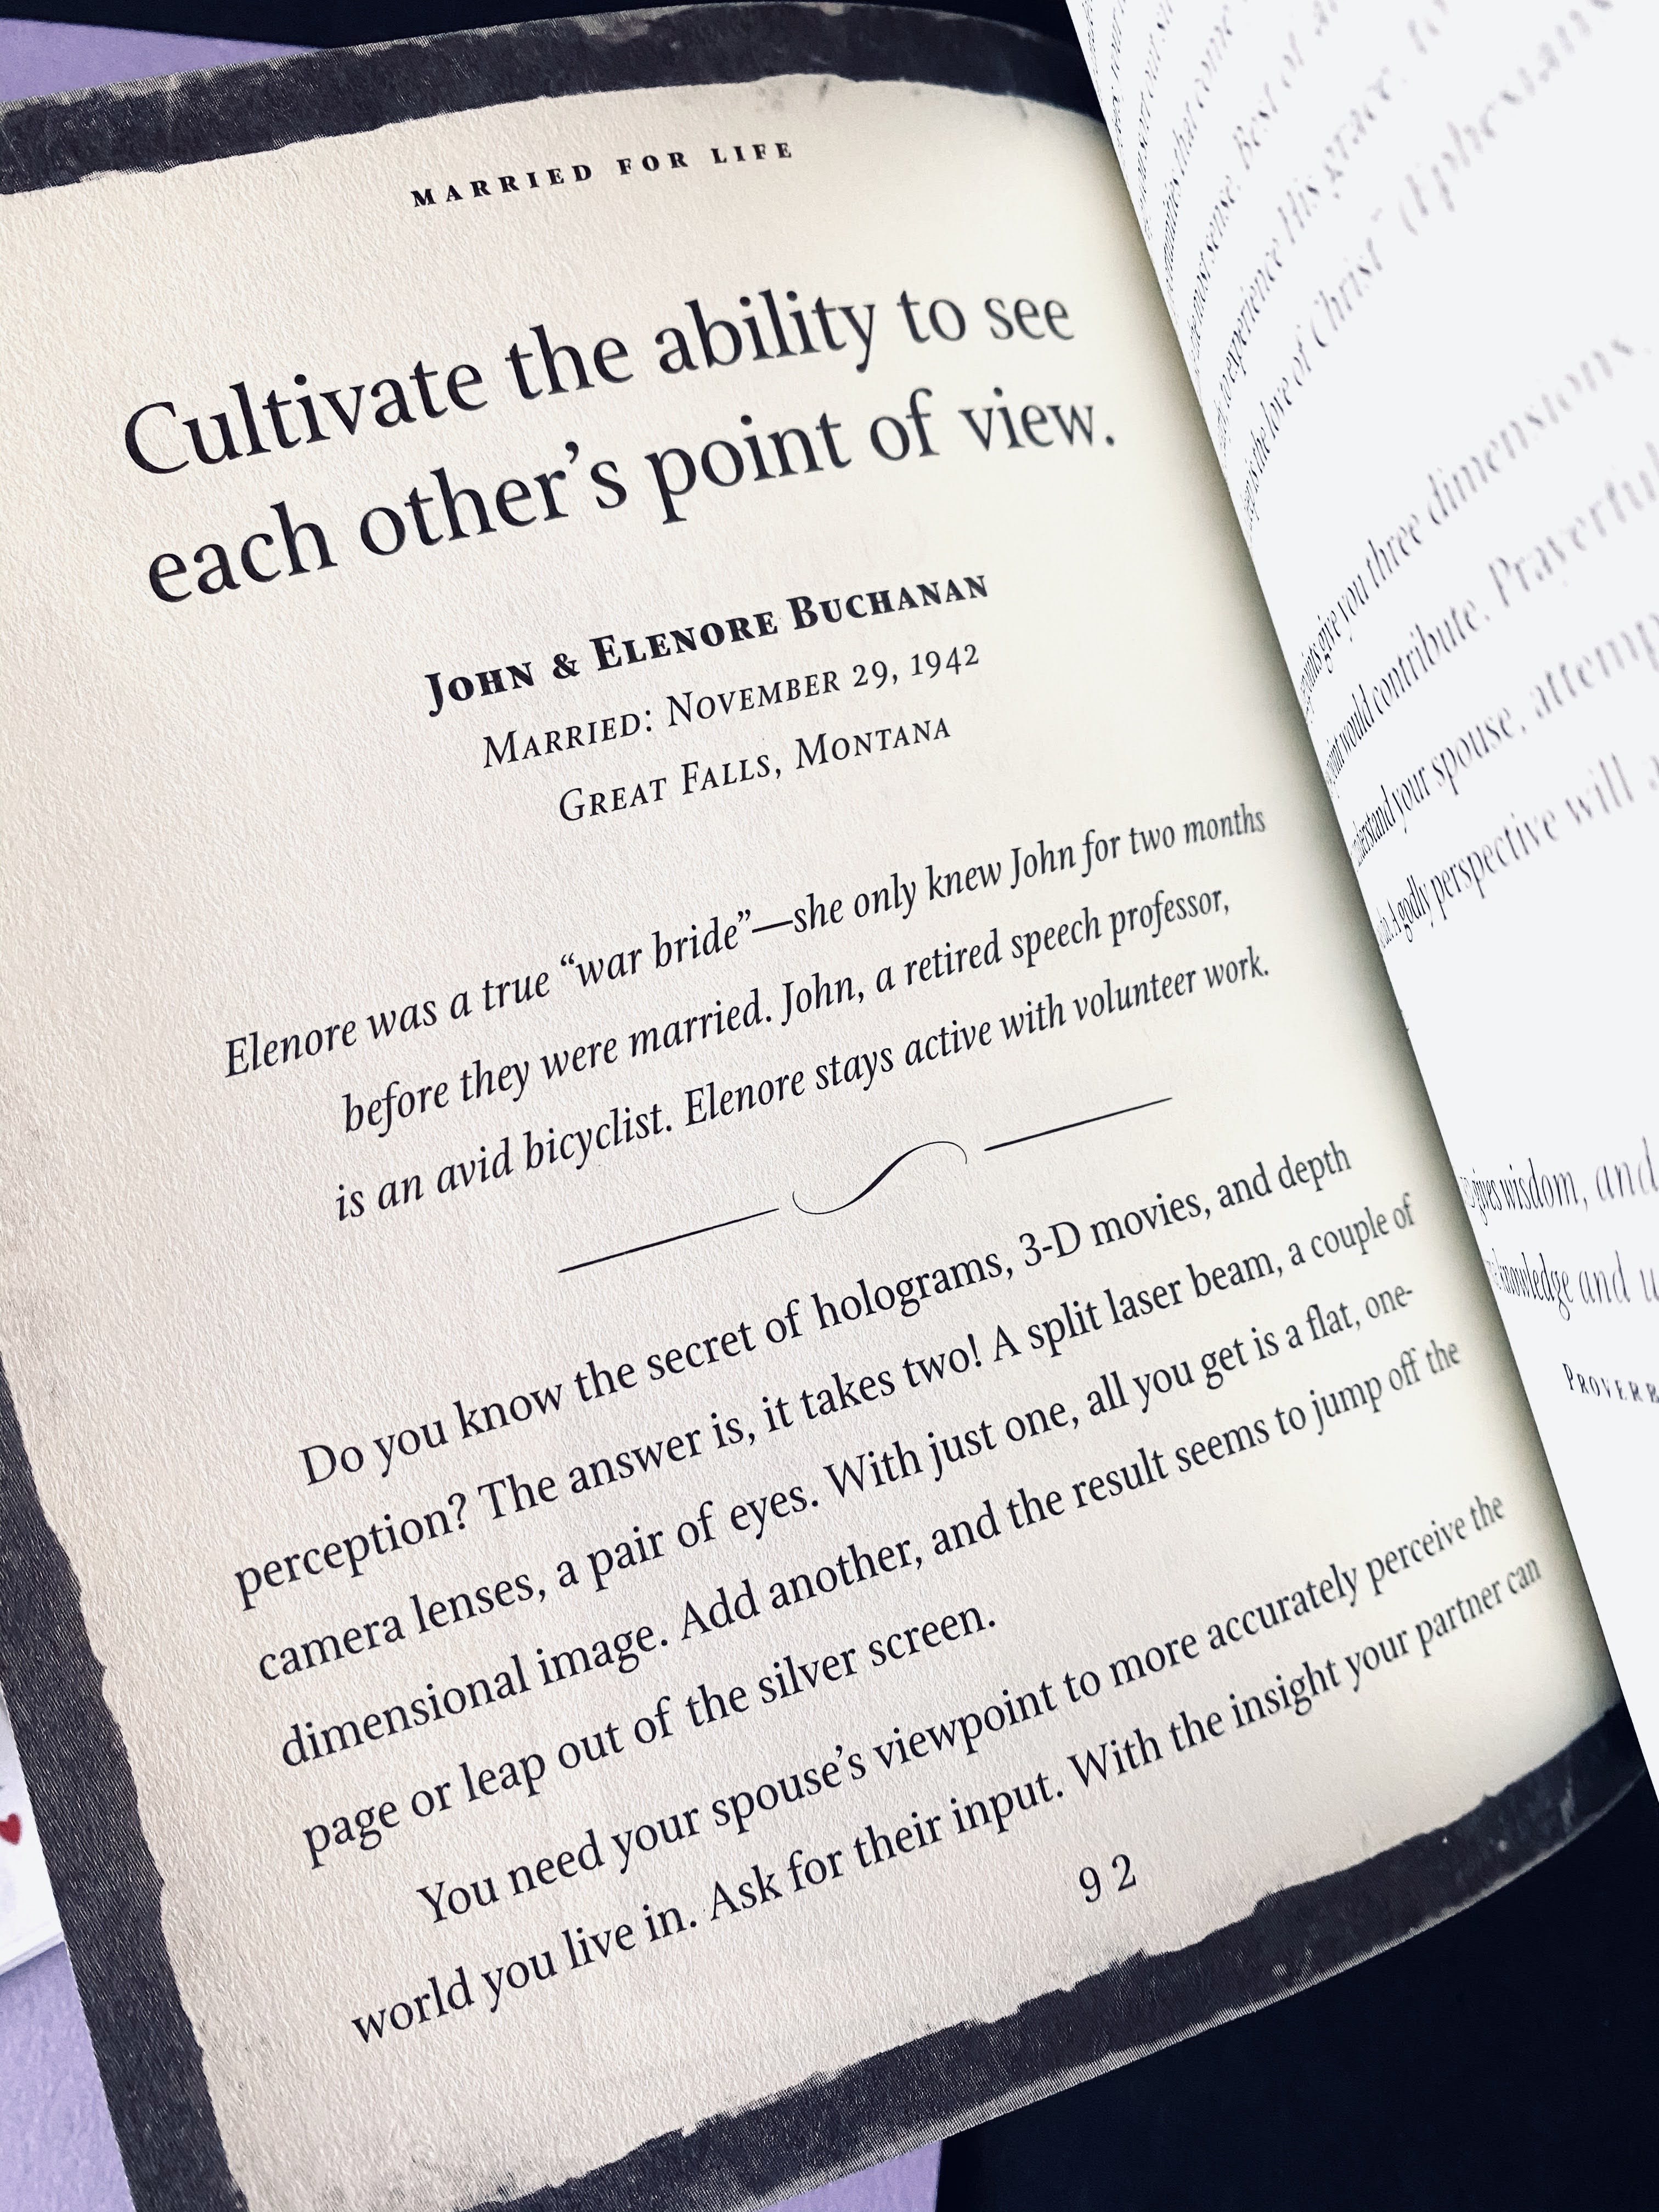 MARRIED FOR LIFE
Cultivate the ability to see
each other’s point of view.
JOHN & ELENORE BUCHANAN
MARRIED: NOVEMBER 29, 1942
GREAT FALLS, MONTANA
Elenore was a true “war bride”—she only knew John for two months
before they were married. John, a retired speech professor,
is an avid bicyclist. Elenore stays active with volunteer work.
Do you know the secret of holograms, 3-D movies, and depth
perception? The answer is, it takes two! A split laser beam, a couple of
camera lenses, a pair of eyes. With just one, all you get is a flat, one-
dimensional image. Add another, and the result seems to jump off the
page or leap out of the silver screen.
You need your spouse’s viewpoint to more accurately perceive the
world you live in. Ask for their input. With the insight your partner can
92
that come
sense. Best of
experience His grace.
is the love of Christ”
give you three dimensions.
would contribute. Prayerful
your spouse, attemp
godly perspective will
gives wisdom, and
knowledge and u
PROVERB